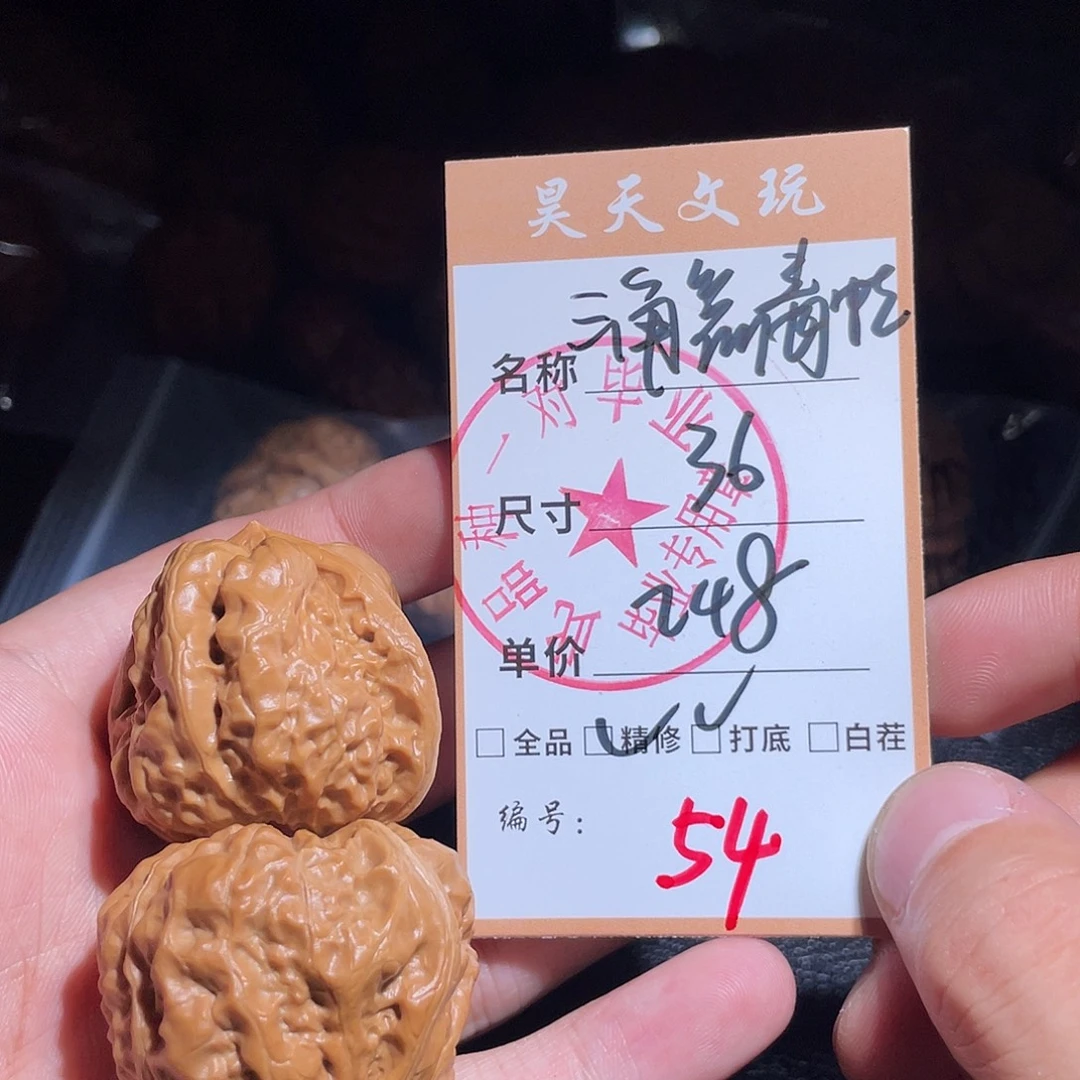 昊天文玩
名称 三角 青帐
尺寸 36
单价 248
□全品 □精修 □打底 □白茬
编号: 54
名品种一对毕业
毕业专用章